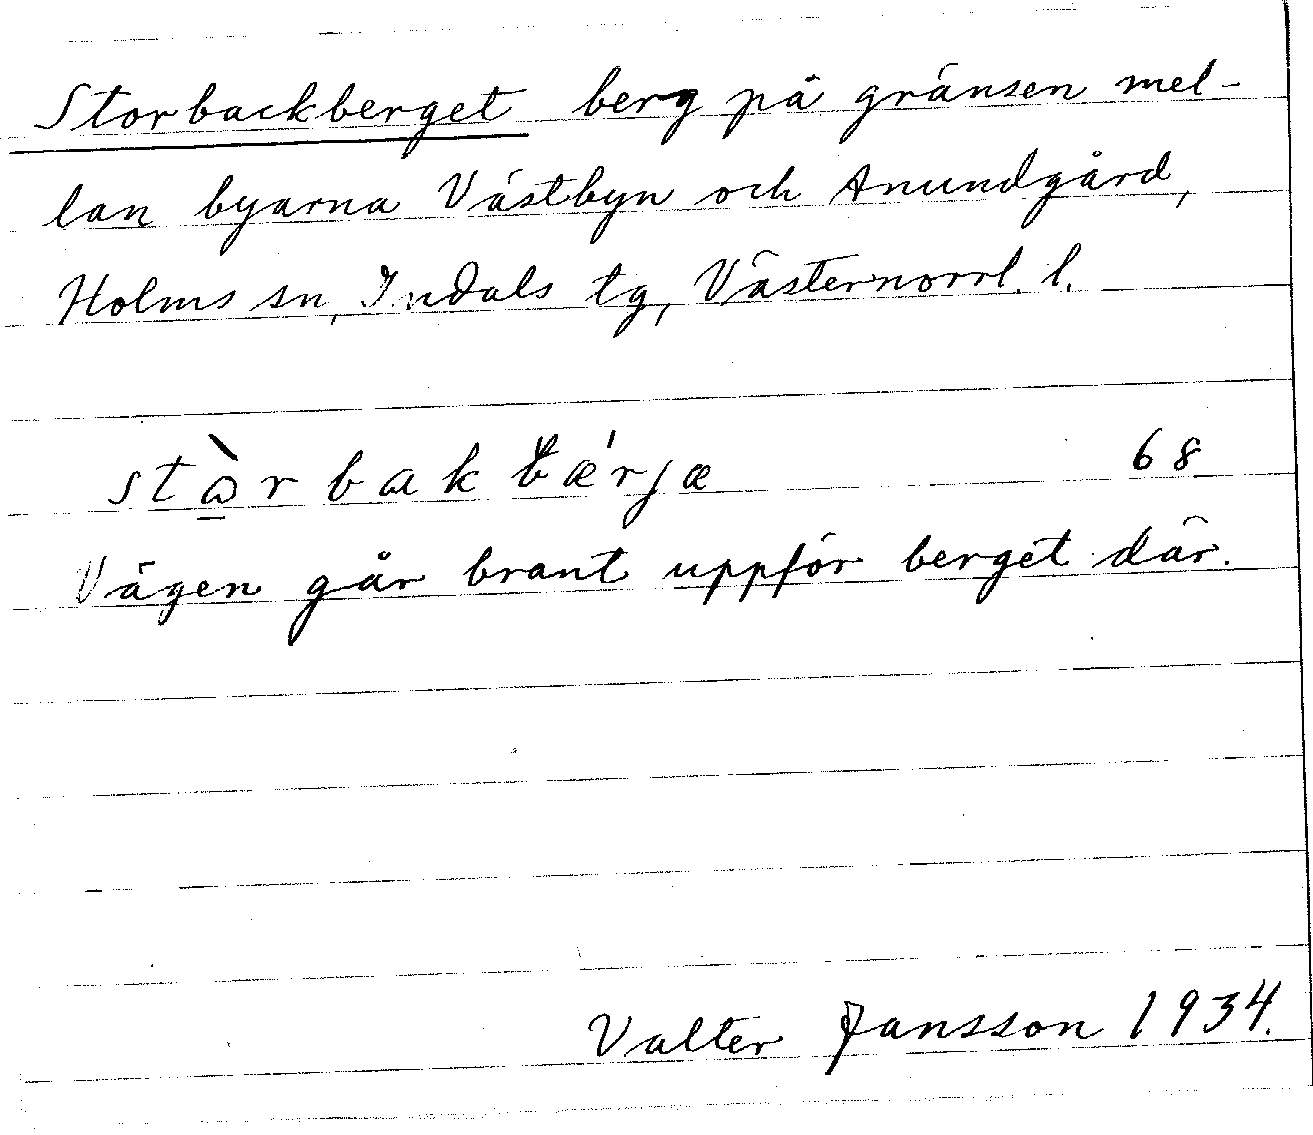 Storbackberget berg på gränsen mel-
lan byarna Västbyn och Anundgård,
Holms sn, Indals tg, Västernorrl. l.
stò̠rbakbǽrjæ 68
Vägen går brant uppför berget där.
Valter Jansson 1934.